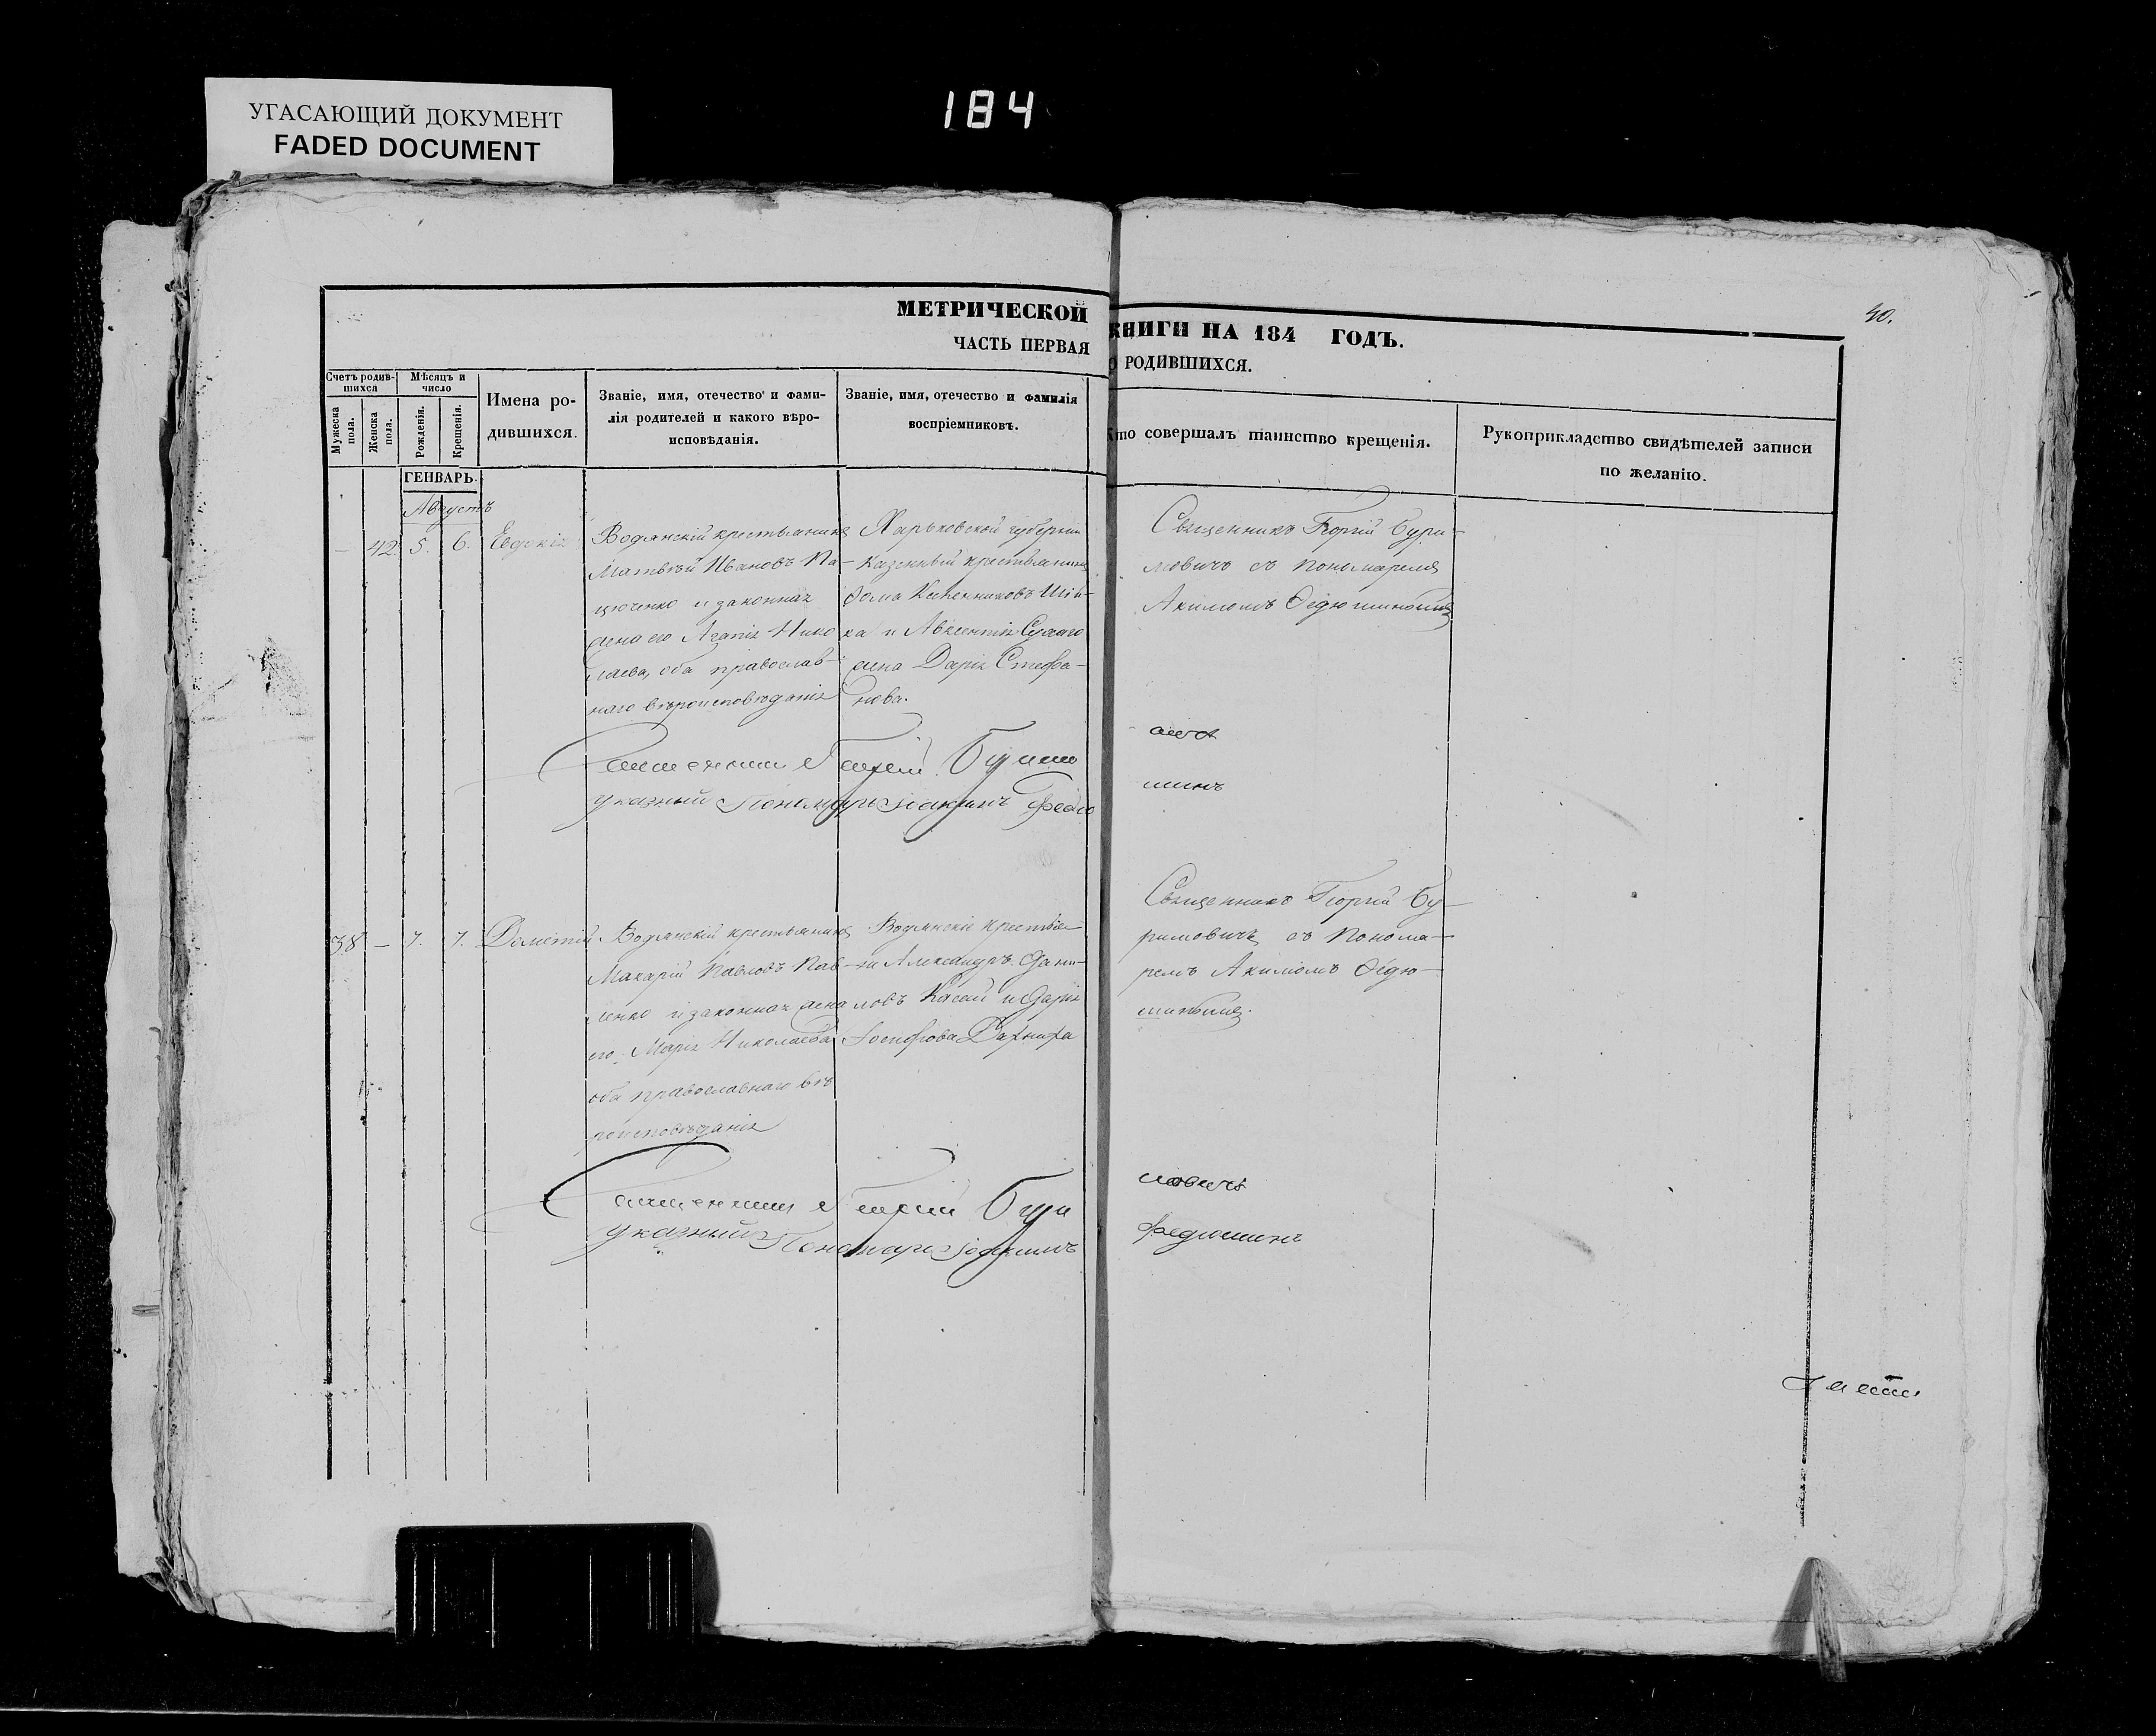 УГАСАЮЩИЙ ДОКУМЕНТ
FADED DOCUMENT
184
40.
МЕТРИЧЕСКОЙ КНИГИ НА 184 ГОДЪ.
ЧАСТЬ ПЕРВАЯ О РОДИВШИХСЯ.
Счетъ родив-
шихся
Мужеска пола.
Женска пола.
Мѣсяцъ и
число
Рожденія.
Крещенія.
Имена ро-
дившихся.
Званіе, имя, отечество и фами-
лія родителей и какого вѣро-
исповѣданія.
Званіе, имя, отечество и фамилія
воспріемниковъ.
Кто совершалъ таинство крещенія.
Рукоприкладство свидѣтелей записи
по желанію.
ГЕНВАРЬ.
Августъ
— 42. 5. 6. Евдокія
Водянскій крестьянинъ
Матвѣй Ивановъ Па-
цюченко и законная
жена его Агапія Нико
лаева, оба православ-
наго вѣроисповѣданія
Харьковской губерніи
казенный крестьянинъ
ка и Авксентія Сухаго
жена Дарія Стефа-
нова.
Священникъ Георгій Бури-
мовичъ съ Пономаремъ
Акимомъ Ѳедюшинымъ
Священникъ Георгій Буримо
вичъ
указный Пономарь Іоакимъ Федю
шинъ
38 — 7. 7. Дометій
Водянскій крестьянинъ
Макарій Павловъ Пав-
ленко и законная жена
его Марія Николаева
оба православнаго вѣ
роисповѣданія
Водянскіе крестья-
не Александръ Дани-
ловъ Касай и Дарія
Іосифова
Священникъ Георгій Бу-
римовичъ съ Понома-
ремъ Акимомъ Ѳедю-
шинымъ.
Священникъ Георгій Бури
мовичъ
указный Пономарь Іоакимъ
Федюшинъ